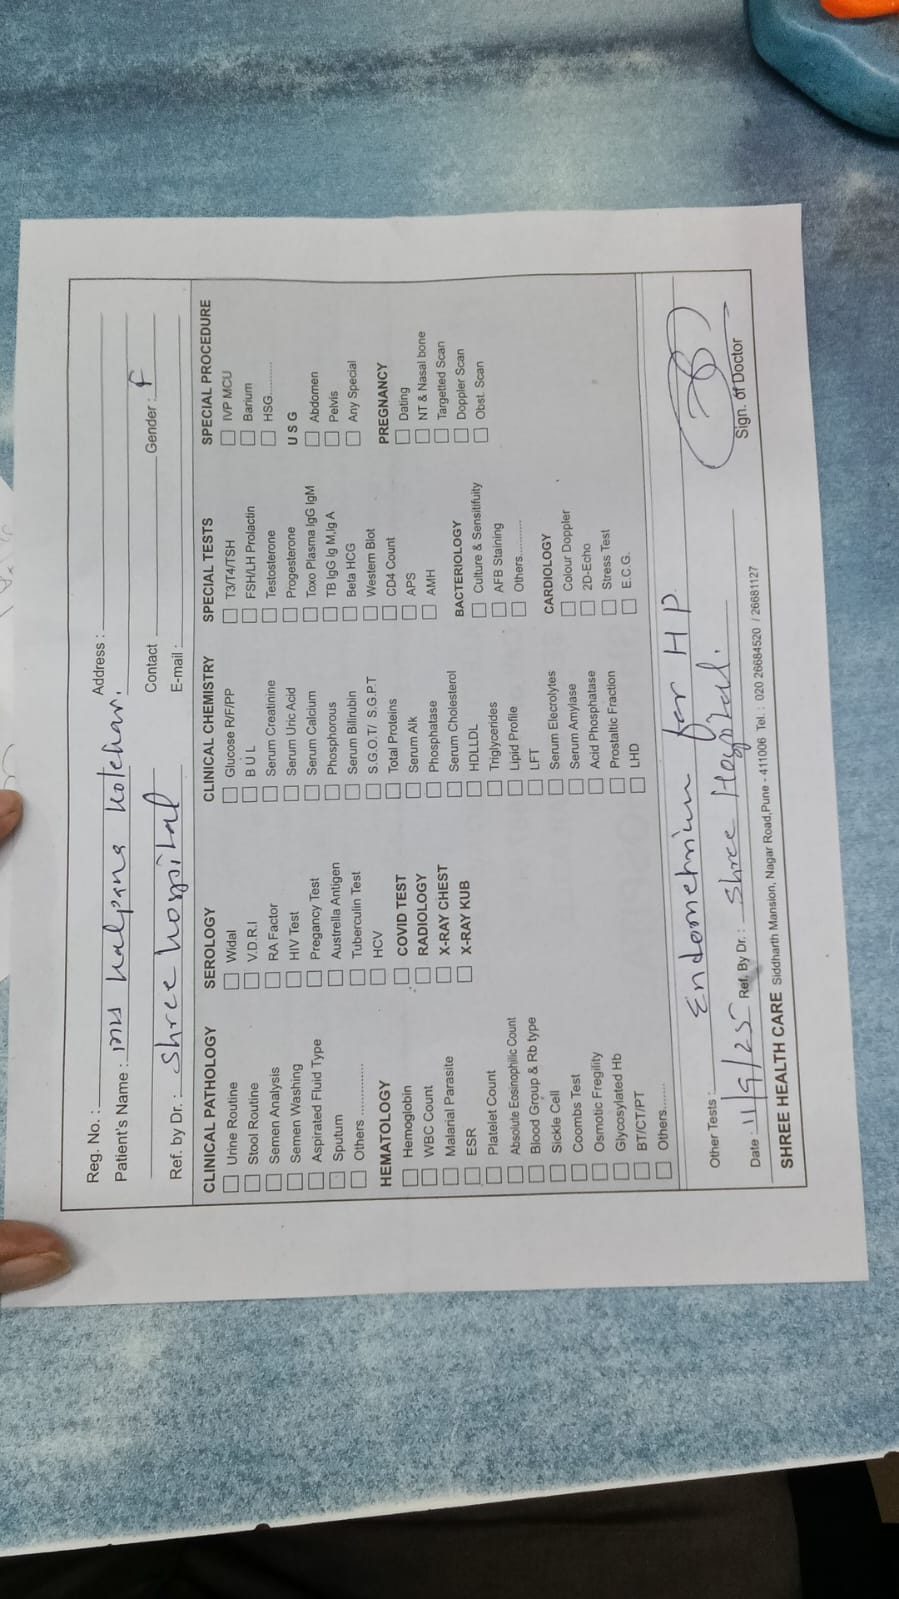 Reg. No. :
Patient's Name : Mrs Kalpana Kotehar. Address :
Contact Gender : F
Ref. by Dr. : Shree hospital E-mail :
CLINICAL PATHOLOGY
Urine Routine
Stool Routine
Semen Analysis
Semen Washing
Aspirated Fluid Type
Sputum
Others ..............
HEMATOLOGY
Hemoglobin
WBC Count
Malarial Parasite
ESR
Platelet Count
Absolute Eosinophilic Count
Blood Group & Rb type
Sickle Cell
Coombs Test
Osmotic Fregility
Glycosylated Hb
BT/CT/PT
Others.......
SEROLOGY
Widal
V.D.R.I
RA Factor
HIV Test
Pregancy Test
Austrella Antigen
Tuberculin Test
HCV
COVID TEST
RADIOLOGY
X-RAY CHEST
X-RAY KUB
CLINICAL CHEMISTRY
Glucose R/F/PP
B U L
Serum Creatinine
Serum Uric Acid
Serum Calcium
Phosphorous
Serum Bilirubin
S.G.O.T/ S.G.P.T
Total Proteins
Serum Alk
Phosphatase
Serum Cholesterol
HDLLDL
Triglycerides
Lipid Profile
LFT
Serum Elecrolytes
Serum Amylase
Acid Phosphatase
Prostaltic Fraction
LHD
SPECIAL TESTS
T3/T4/TSH
FSH/LH Prolactin
Testosterone
Progesterone
Toxo Plasma IgG IgM
TB IgG Ig M,Ig A
Beta HCG
Western Blot
CD4 Count
APS
AMH
BACTERIOLOGY
Culture & Sensitifuity
AFB Staining
Others...........
CARDIOLOGY
Colour Doppler
2D-Echo
Stress Test
E.C.G.
SPECIAL PROCEDURE
IVP MCU
Barium
HSG..........
U S G
Abdomen
Pelvis
Any Special
PREGNANCY
Dating
NT & Nasal bone
Targetted Scan
Doppler Scan
Obst. Scan
Other Tests : Endometrium for HP
Date : 11/9/25 Ref. By Dr. : Shree Hospital. Sign. of Doctor
SHREE HEALTH CARE Siddharth Mansion, Nagar Road,Pune - 411006 Tel. : 020 26684520 / 26681127